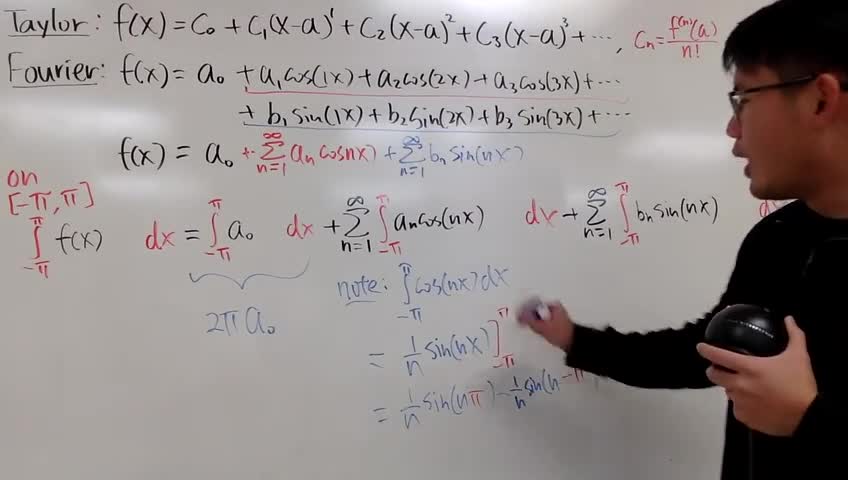 Taylor: f(x) = C₀ + C₁(x-a)¹ + C₂(x-a)² + C₃(x-a)³ + ⋯ , Cₙ = f⁽ⁿ⁾(a)/n!
Fourier: f(x) = a₀ + a₁cos(1x) + a₂cos(2x) + a₃cos(3x) + ⋯
+ b₁sin(1x) + b₂sin(2x) + b₃sin(3x) + ⋯
f(x) = a₀ + ∑_{n=1}^{∞} aₙcosnx) + ∑_{n=1}^{∞} bₙsin(nx)
on
[-π, π]
∫_{-π}^{π} f(x) dx = ∫_{-π}^{π} a₀ dx + ∑_{n=1}^{∞} ∫_{-π}^{π} aₙcos(nx) dx + ∑_{n=1}^{∞} ∫_{-π}^{π} bₙsin(nx)
2πa₀
note: ∫_{-π}^{π} cos(nx)dx
= 1/n sin(nx)]_{-π}^{π}
= 1/n sin(nπ) - 1/n sin(n·-π